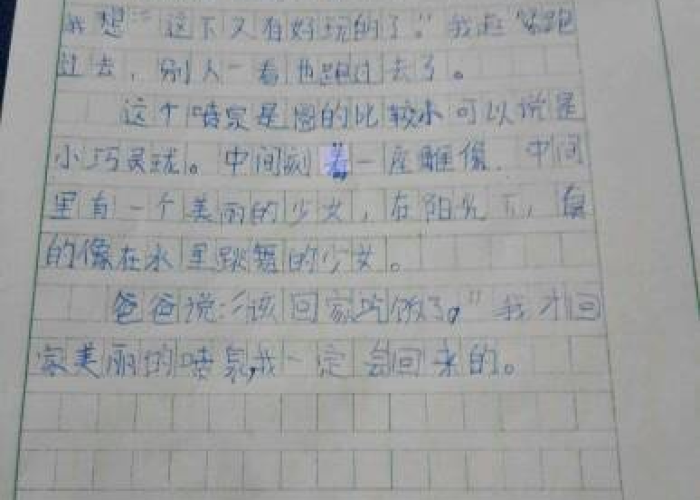 我想："这下又有好玩的了。"我赶紧跑
过去，别人一看也跑过去了。
这个喷泉是圆的比较小可以说是
小巧灵珑。中间刻着一座雕像，中间
里有一个美丽的少女，在阳光下，真
的像在水里跳舞的少女。
爸爸说："该回家吃饭了。"我才回
家美丽的喷泉，我一定会回来的。